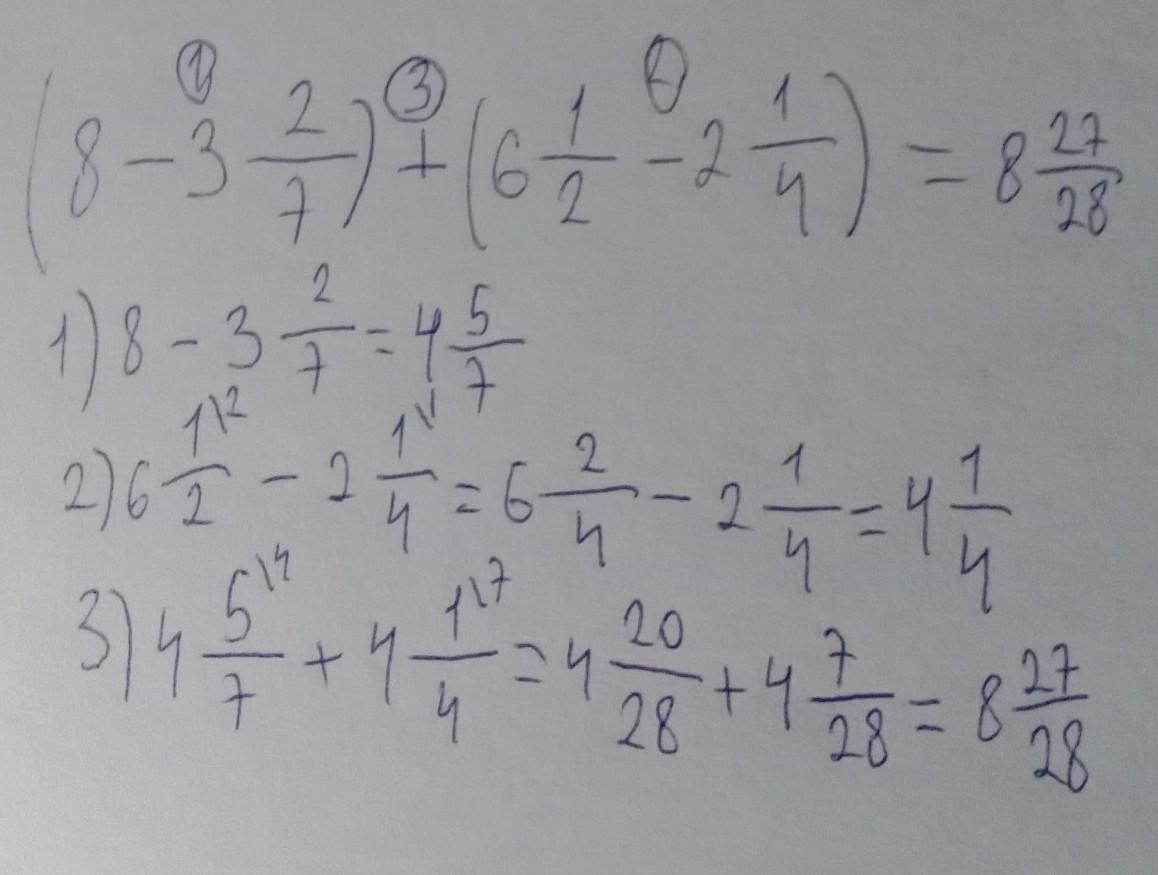 ① ③ ②
(8 - 3 2/7) + (6 1/2 - 2 1/4) = 8 27/28
1) 8 - 3 2/7 = 4 5/7
2) 6 1\2/2 - 2 1\1/4 = 6 2/4 - 2 1/4 = 4 1/4
3) 4 5\4/7 + 4 1\7/4 = 4 20/28 + 4 7/28 = 8 27/28